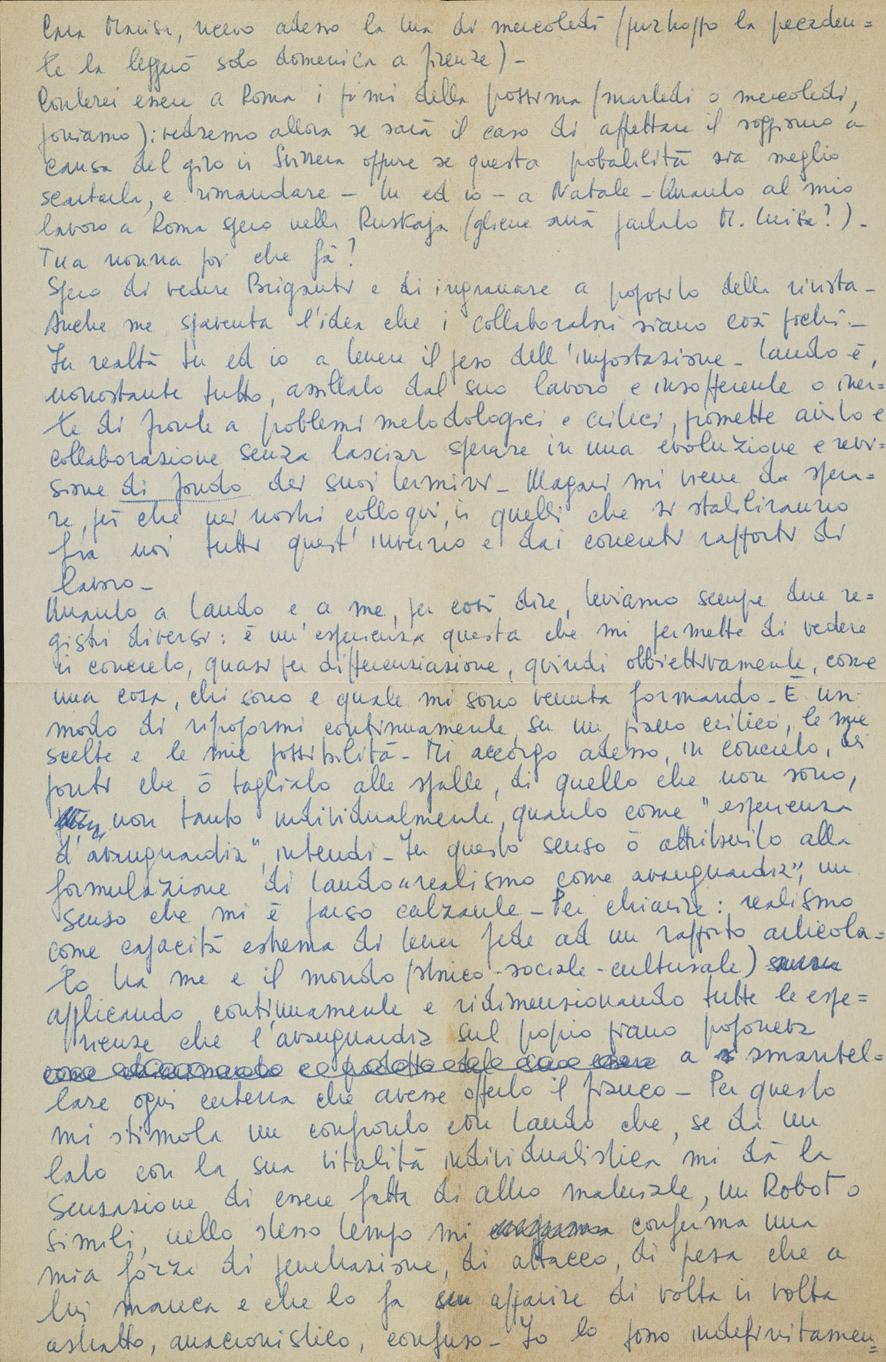 Cara Marisa, ricevo adesso la tua di mercoledì (purtroppo la preceden=
te la leggerò solo domenica a firenze) –
Conterei essere a Roma i primi della prossima (martedì o mercoledì,
poniamo): vedremo allora se sarà il caso di affettare il soggiorno a
causa del giro in Svizzera oppure se questa probabilità sia meglio
scartarla, e rimandare – tu ed io – a Natale – Quanto al mio
lavoro a Roma spero nella Ruskaja (gliene avrà parlato M. Luisa?) –
Tua nonna poi che fà?
Spero di vedere Briganti e di ingranare a proposito della rivista –
Anche me spaventa l'idea che i collaboratori siano così pochi –
In realtà tu ed io a tenere il peso dell'impostazione – Lando è,
nonostante tutto, assillato dal suo lavoro e insofferente o iner=
te di fronte a problemi metodologici e critici, promette aiuto e
collaborazione senza lasciar sperare in una evoluzione e revi=
sione di fondo dei suoi termini – Magari mi viene da spera=
re, più che nei nostri colloqui, in quelli che si stabiliranno
fra noi tutti quest'inverno e dai concreti rapporti di
lavoro –
Quanto a Lando e a me, per così dire, teniamo sempre due re=
gistri diversi: è un'esperienza questa che mi permette di vedere
in concreto, quasi per differenziazione, quindi obbiettivamente, come
una cosa, chi sono e quale mi sono venuta formando – È un
modo di ripropormi continuamente, su un piano critico, le mie
scelte e le mie possibilità – Mi accorgo adesso, in concreto, dei
ponti che ò tagliato alle spalle, di quello che non sono,
non tanto individualmente, quanto come "esperienza
d'avanguardia", intendi – In questo senso ò attribuito alla
formulazione di Lando "realismo come avanguardia", un
senso che mi è parso calzante – Per chiarire: realismo
come capacità estrema di tener fede ad un rapporto articola=
to tra me e il mondo (storico-sociale-culturale)
applicando continuamente e ridimensionando tutte le espe=
rienze che l'avanguardia sul proprio piano proponeva
a smantel=
lare ogni certezza che avesse offerto il fianco – Per questo
mi stimola un confronto con Lando che, se da un
lato con la sua vitalità individualistica mi dà la
sensazione di essere fatta di altro materiale, un Robot o
simili, nello stesso tempo mi conferma una
mia forza di penetrazione, di attacco, di presa che a
lui manca e che lo fa apparire di volta in volta
astratto, anacronistico, confuso – Io lo posso indefinitamen=